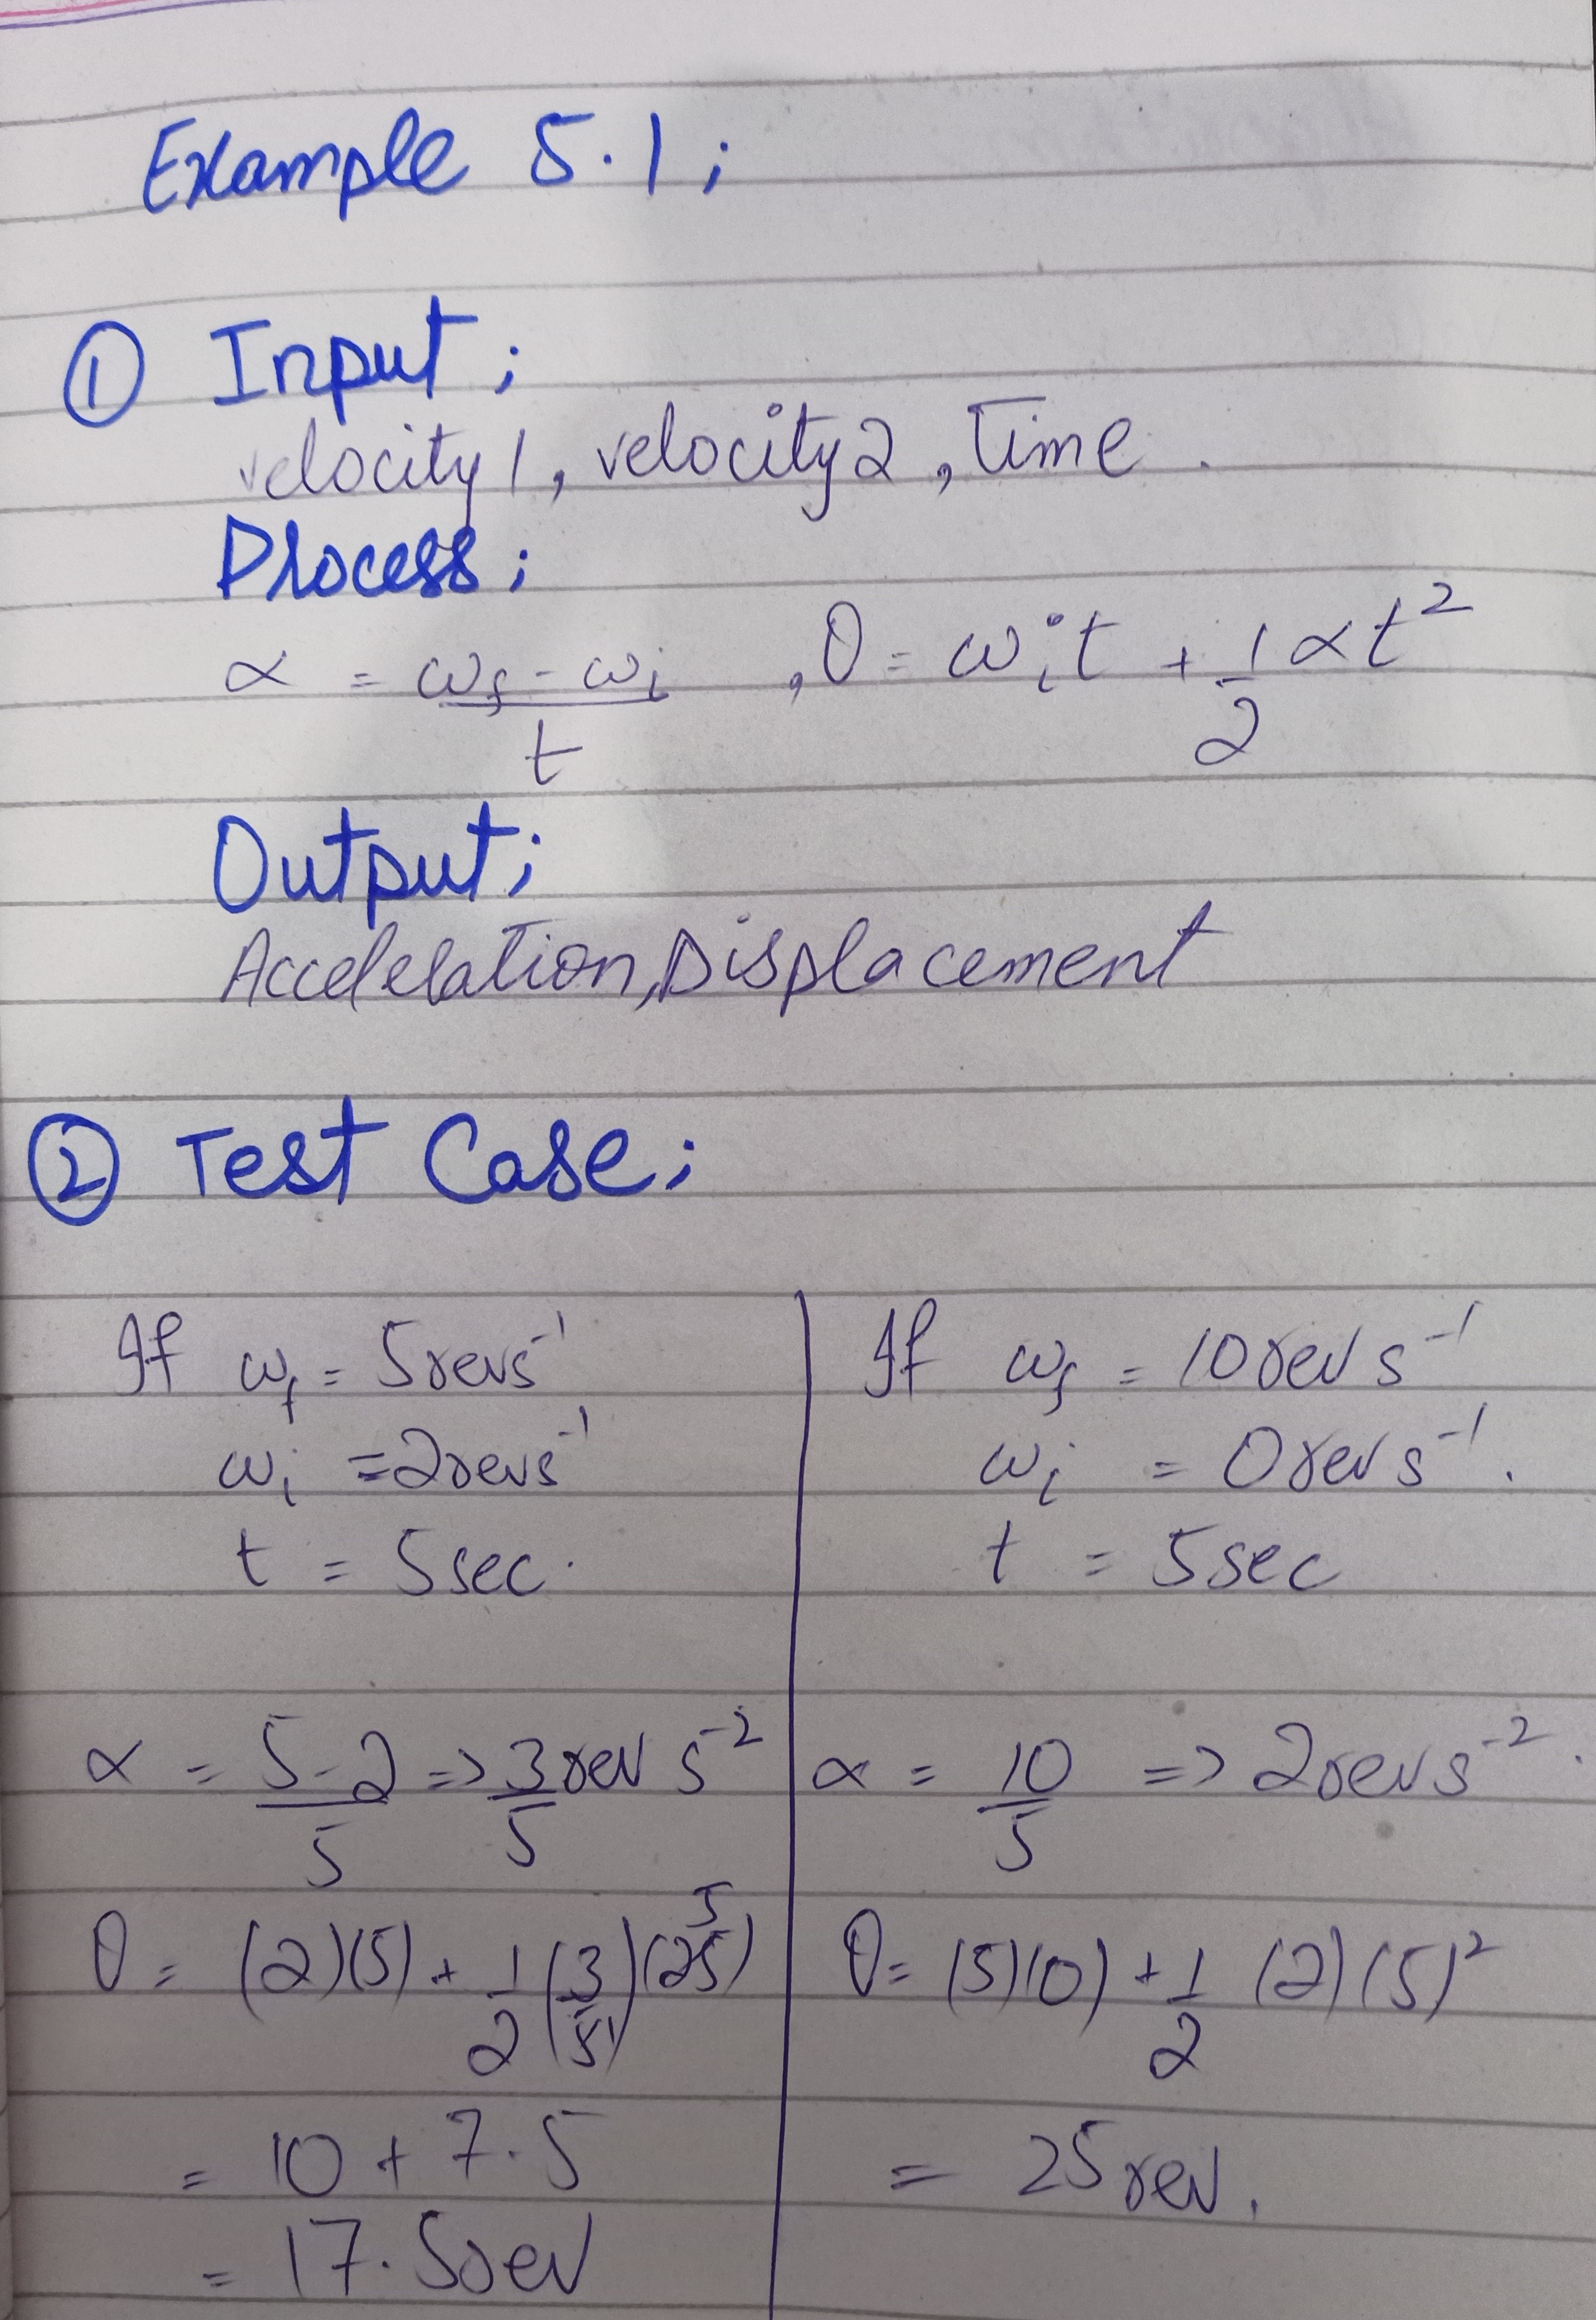 Example 5.1;
① Input;
velocity1, velocity2, Time.
Process;
α = ωf - ωi / t , θ = ωit + 1/2 αt²
Output;
Accelelation, Displacement
② Test Case;
If ωf = 5revs⁻¹
ωi = 2revs⁻¹
t = 5sec.
α = 5-2/5 => 3/5 rev s⁻²
θ = (2)(5) + 1/2 (3/5)(25)
= 10 + 7.5
= 17.5rev
If ωf = 10rev s⁻¹
ωi = 0rev s⁻¹.
t = 5sec
α = 10/5 => 2rev s⁻².
θ = (5)(0) + 1/2 (2)(5)²
= 25rev.